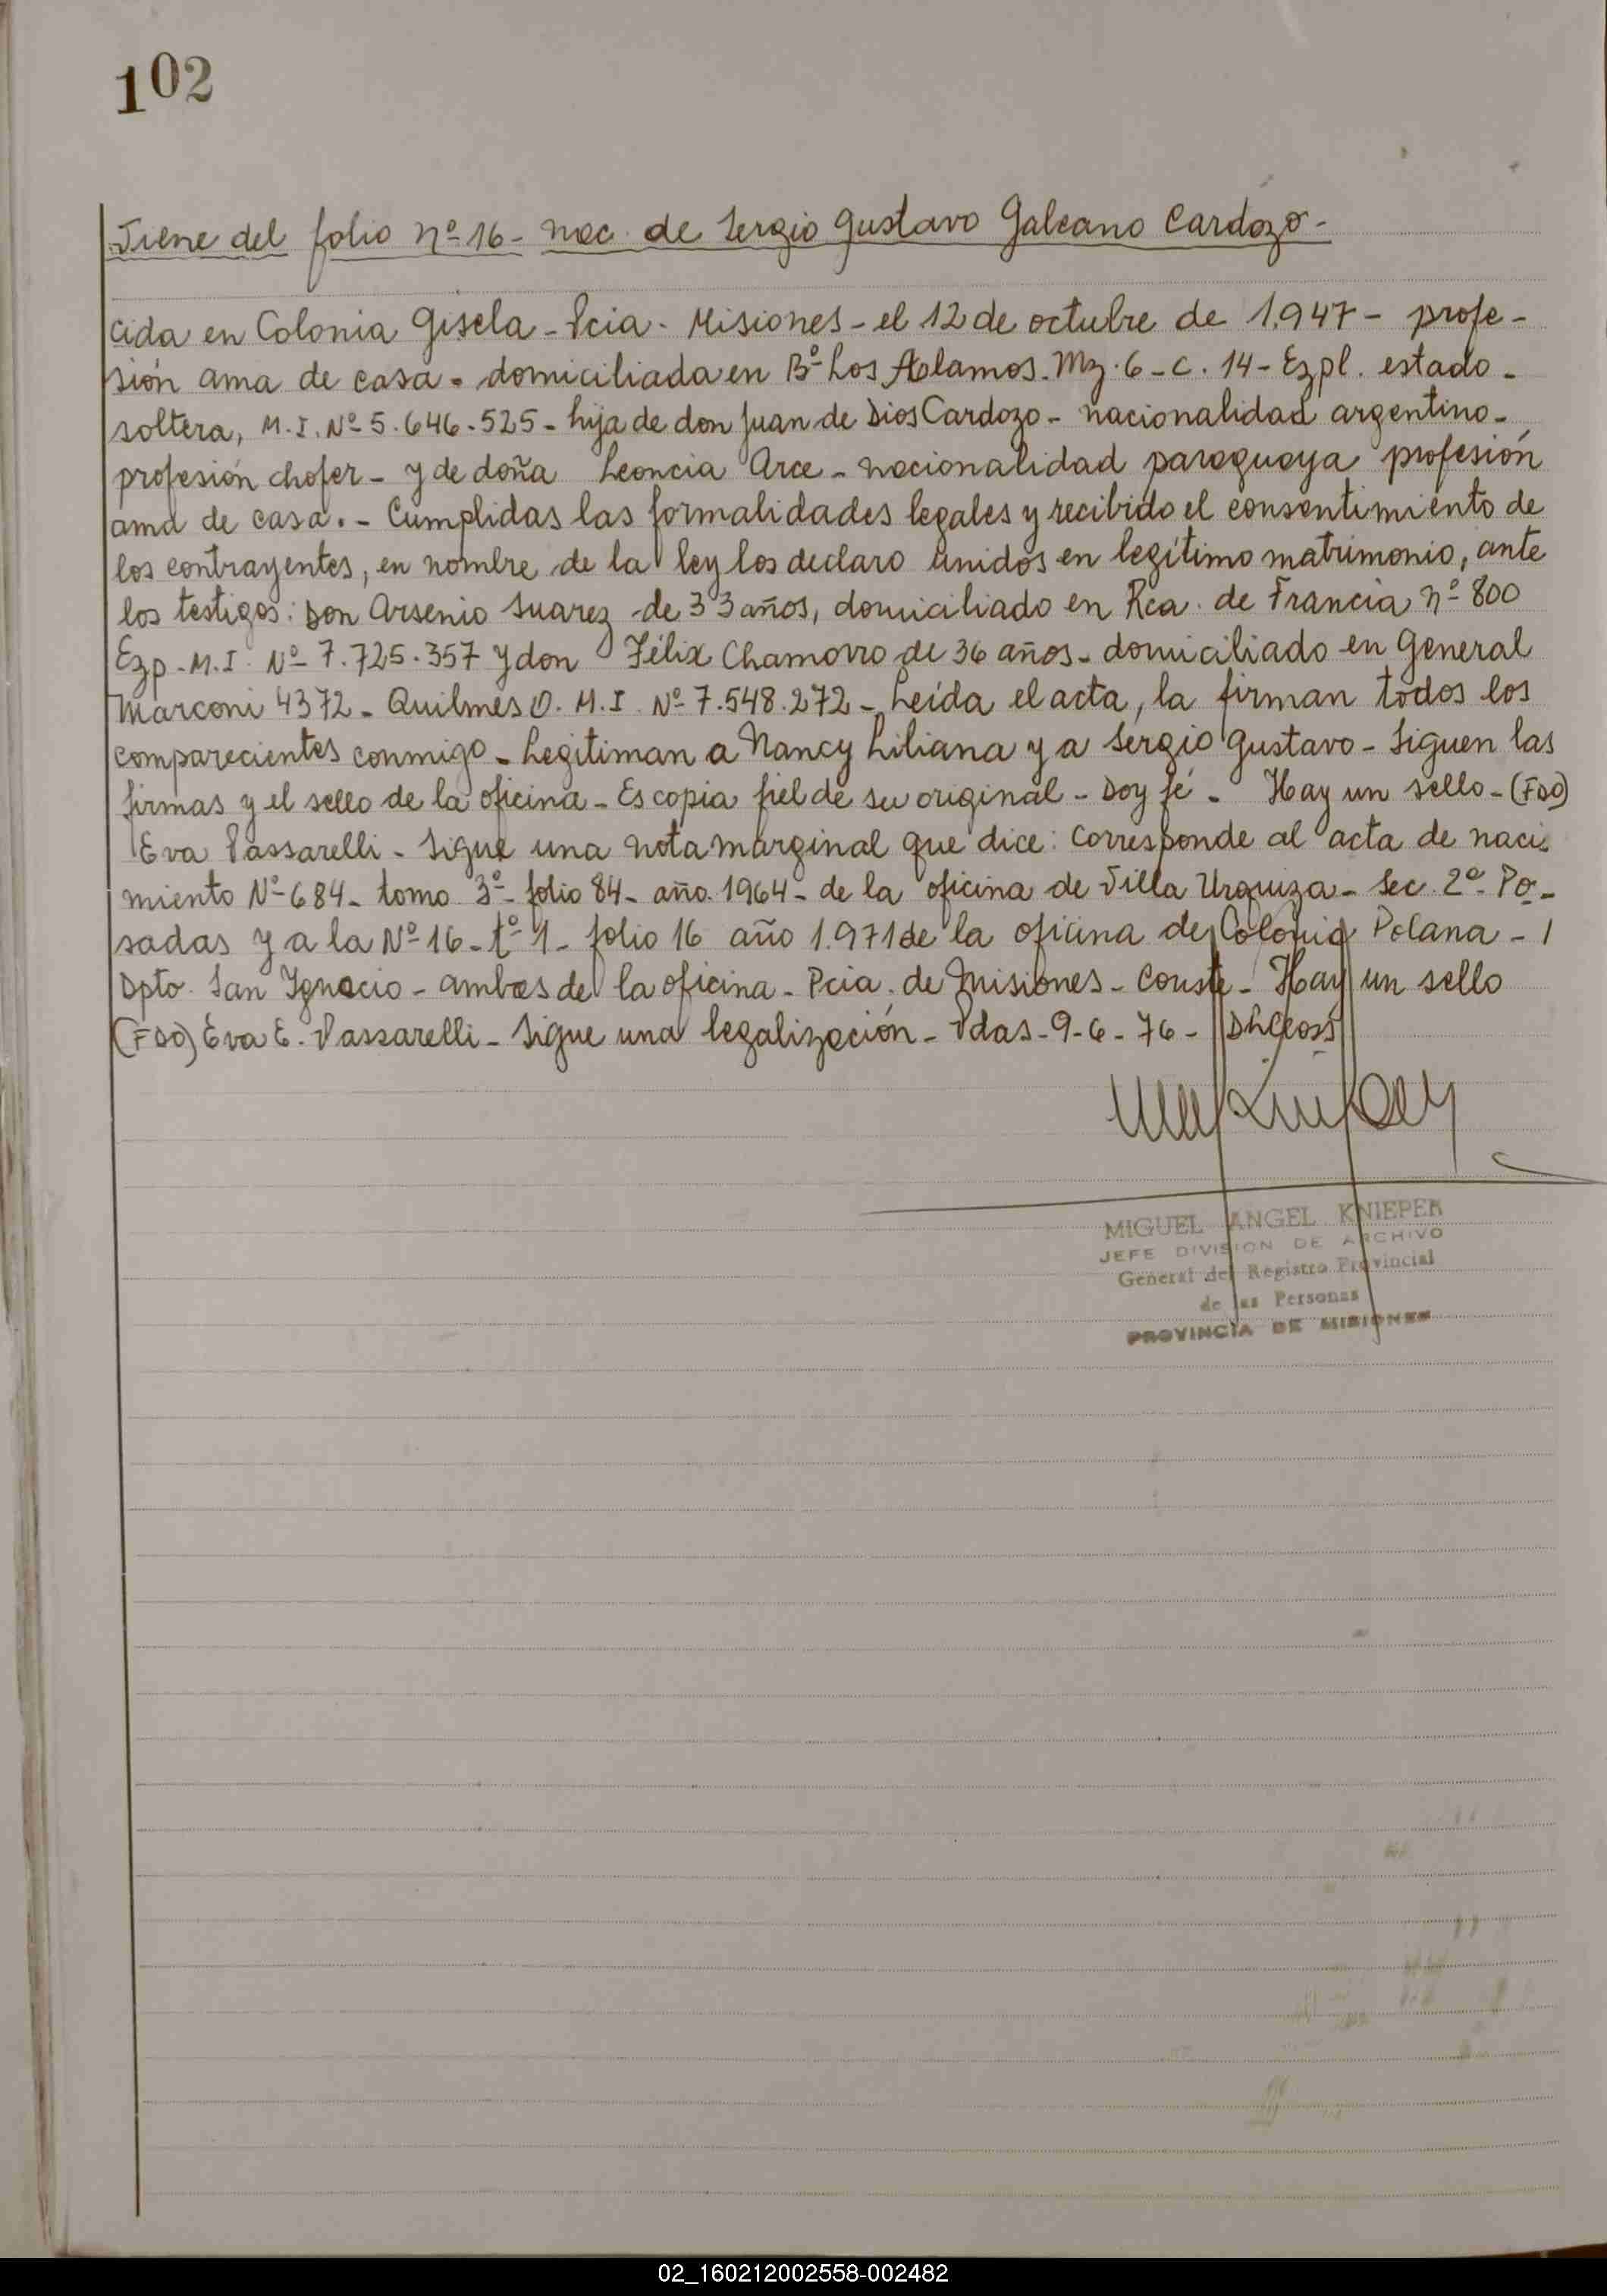 102
Viene del folio nº 16- nac. de Sergio Gustavo Galeano Cardozo-
cida en Colonia Gisela - Pcia. Misiones - el 12 de octubre de 1.947 - profe-
sión ama de casa - domiciliada en Bº Los Alamos - Mz. 6 - C. 14 - Ezpl. estado -
soltera, M.I. Nº 5.646.525 - hija de don Juan de Dios Cardozo - nacionalidad argentino -
profesión chofer - y de doña Leoncia Arce - nacionalidad paraguaya profesión
ama de casa. - Cumplidas las formalidades legales y recibido el consentimiento de
los contrayentes, en nombre de la ley los declaro unidos en legítimo matrimonio, ante
los testigos: Don Arsenio Suarez de 33 años, domiciliado en Rca. de Francia nº 800
Ezp - M.I. Nº 7.725.357 y don Félix Chamorro de 36 años - domiciliado en General
Marconi 4372 - Quilmes O. M.I. Nº 7.548.272 - Leída el acta, la firman todos los
comparecientes conmigo - Legitiman a Nancy Liliana y a Sergio Gustavo - Siguen las
firmas y el sello de la oficina - Es copia fiel de su original - Doy fé - Hay un sello - (FDO)
Eva Passarelli - Sigue una nota marginal que dice: Corresponde al acta de naci-
miento Nº 684 - tomo 3º - folio 84 - año 1964 - de la oficina de Villa Urquiza - Sec. 2º Po-
sadas y a la Nº 16 - tº 1 - folio 16 año 1.971 de la oficina de Colonia Polana -
Dpto. San Ignacio - ambas de la oficina - Pcia. de Misiones - Conste - Hay un sello
(FDO) Eva E. Passarelli - Sigue una legalización - Pdas - 9-6-76 -
MIGUEL ANGEL KNIEPER
JEFE DIVISION DE ARCHIVO
General del Registro Provincial
de las Personas
PROVINCIA DE MISIONES
02_160212002558-002482